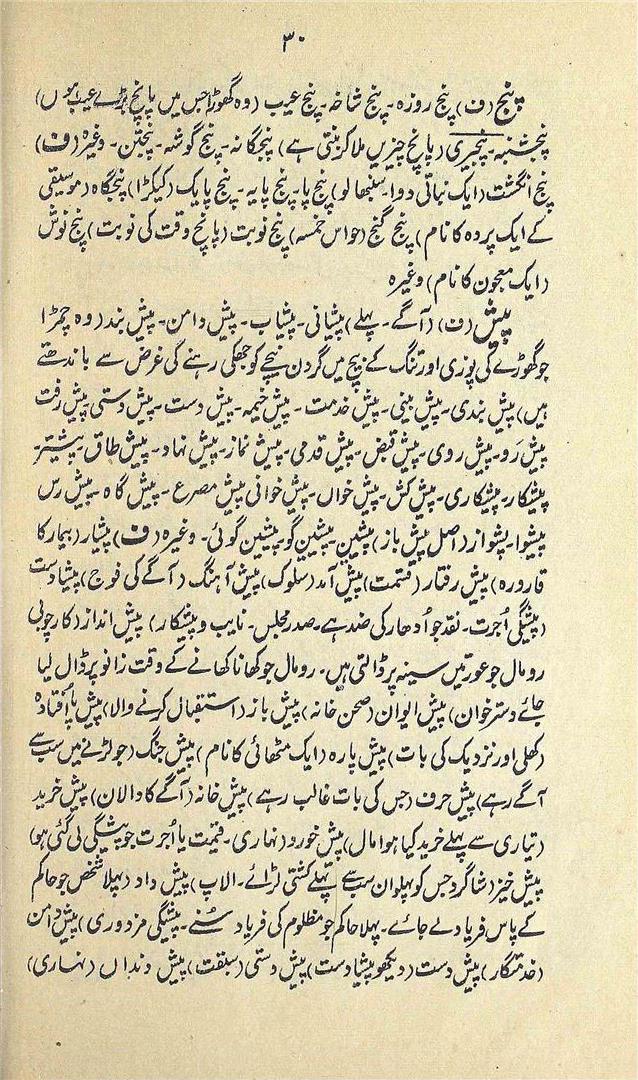 ۳۰
پنج (ف) پنج روزہ۔ پنج شاخہ۔ پنج عیب (وہ گھوڑا جس میں پانچ بڑے عیب ہوں)
پنجشنبہ۔ پنجیری (پانچ چیزیں ملا کر بنتی ہے) پنجگانہ۔ پنج گوشہ۔ پنجتن۔ وغیرہ (ف)
پنج انگشت (ایک نباتی دوا۔ سنبھالو) پنج پا۔ پنج پایہ۔ پنج پایک (کیکڑا) پنجگاہ (موسیقی
کے ایک پردہ کا نام) پنج گنج (حواس خمسہ) پنج نوبت (پانچ وقت کی نوبت) پنج نوش
(ایک معجون کا نام) وغیرہ
پیش (ف) (آگے۔ پہلے) پیشانی۔ پیشاب۔ پیش دامن۔ پیش بند (وہ چمڑا
جو گھوڑے کی پوزی اور تنگ کے بیچ میں گردن نیچے کو جھکی رہنے کی غرض سے باندھتے
ہیں) پیش بندی۔ پیش بینی۔ پیش خدمت۔ پیش خیمہ۔ پیش دست۔ پیش دستی۔ پیش رفت
پیش رَو۔ پیش روی۔ پیش قبض۔ پیش قدمی۔ پیش نماز۔ پیش نہاد۔ پیش طاق۔ پیشتر۔
پیشکار۔ پیشکاری۔ پیش کش۔ پیش خواں۔ پیش خوانی۔ پیش مصرع۔ پیش گاہ۔ پیش رس
پیشوا۔ پشواز (اصل پیش باز) پیشین۔ پیشین گو۔ پیشین گوئی۔ وغیرہ (ف) پیشیار (بیمار کا
قارورہ) پیش رفتار (قسمت) پیش آمد (سلوک) پیش آہنگ (آگے کی فوج) پیشادست
(پیشگی اُجرت۔ نقد جو اُدھار کی ضد ہے۔ صدر مجلس۔ نایب و پیشکار) پیش انداز (کارچوبی
رومال جو عورتیں سینہ پر ڈالتی ہیں۔ رومال جو کھانا کھانے کے وقت زانو پر ڈال لیا
جائے دسترخوان) پیش ایوان (صحن خانہ) پیش باز (استقبال کرنے والا) پیش پا اُفتادہ
(کھلی اور نزدیک کی بات) پیش پارہ (ایک مٹھائی کا نام) پیش جنگ (جو لڑنے میں سب سے
آگے رہے) پیش حرف (جس کی بات غالب رہے) پیش خانہ (آگے کا دالان) پیش خرید
(تیاری سے پہلے خرید کیا ہوا مال) پیش خورو (نہاری۔ قیمت یا اُجرت جو پیشگی لی گئی ہو)
پیش خیز (شاگرد جس کو پہلوان سب سے پہلے کشتی لڑائے۔ الاپ) پیش داد (پہلا شخص جو حاکم
کے پاس فریاد لے جائے۔ پہلا حاکم جو مظلوم کی فریاد سُنے۔ پیشگی مزدوری) پیش دامن
(خدمتگار) پیش دست (دیکھو پیشادست) پیش دستی (سبقت) پیش دنداں (نہاری)